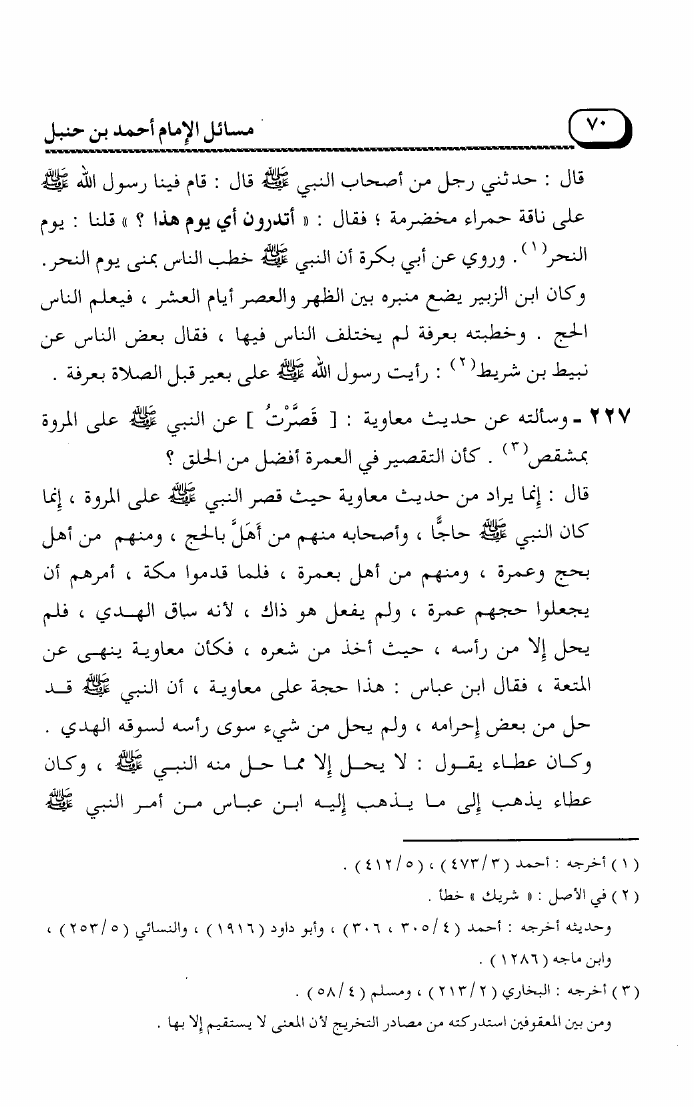 ٧٠
مسائل الإمام أحمد بن حنبل
قال : حدثني رجل من أصحاب النبي ﷺ قال : قام فينا رسول الله ﷺ
على ناقة حمراء مخضرمة ؛ فقال : « أتدرون أي يوم هذا ؟ » قلنا : يوم
النحر(١). وروي عن أبي بكرة أن النبي ﷺ خطب الناس بمنى يوم النحر.
وكان ابن الزبير يضع منبره بين الظهر والعصر أيام العشر ، فيعلم الناس
الحج . وخطبته بعرفة لم يختلف الناس فيها ، فقال بعض الناس عن
نبيط بن شريط(٢) : رأيت رسول الله ﷺ على بعير قبل الصلاة بعرفة .
٢٢٧ - وسألته عن حديث معاوية : [ قَصَّرْتُ ] عن النبي ﷺ على المروة
بمشقص(٣) . كأن التقصير في العمرة أفضل من الحلق ؟
قال : إنما يراد من حديث معاوية حيث قصر النبي ﷺ على المروة ، إنما
كان النبي ﷺ حاجًّا ، وأصحابه منهم من أَهَلَّ بالحج ، ومنهم من أهل
بحج وعمرة ، ومنهم من أهل بعمرة ، فلما قدموا مكة ، أمرهم أن
يجعلوا حجهم عمرة ، ولم يفعل هو ذاك ، لأنه ساق الهدي ، فلم
يحل إلا من رأسه ، حيث أخذ من شعره ، فكأن معاوية ينهى عن
المتعة ، فقال ابن عباس : هذا حجة على معاوية ، أن النبي ﷺ قد
حل من بعض إحرامه ، ولم يحل من شيء سوى رأسه لسوقه الهدي .
وكان عطاء يقول : لا يحل إلا مما حل منه النبي ﷺ ، وكان
عطاء يذهب إلى ما يذهب إليه ابن عباس من أمر النبي ﷺ
(١) أخرجه : أحمد (٤٧٣/٣) ، (٤١٢/٥) .
(٢) في الأصل : « شريك » خطأ .
وحديثه أخرجه : أحمد (٣٠٥/٤ ، ٣٠٦) ، وأبو داود (١٩١٦) ، والنسائي (٢٥٣/٥) ،
وابن ماجه (١٢٨٦) .
(٣) أخرجه : البخاري (٢١٣/٢) ، ومسلم (٥٨/٤) .
ومن بين المعقوفين استدركته من مصادر التخريج لأن المعنى لا يستقيم إلا بها .